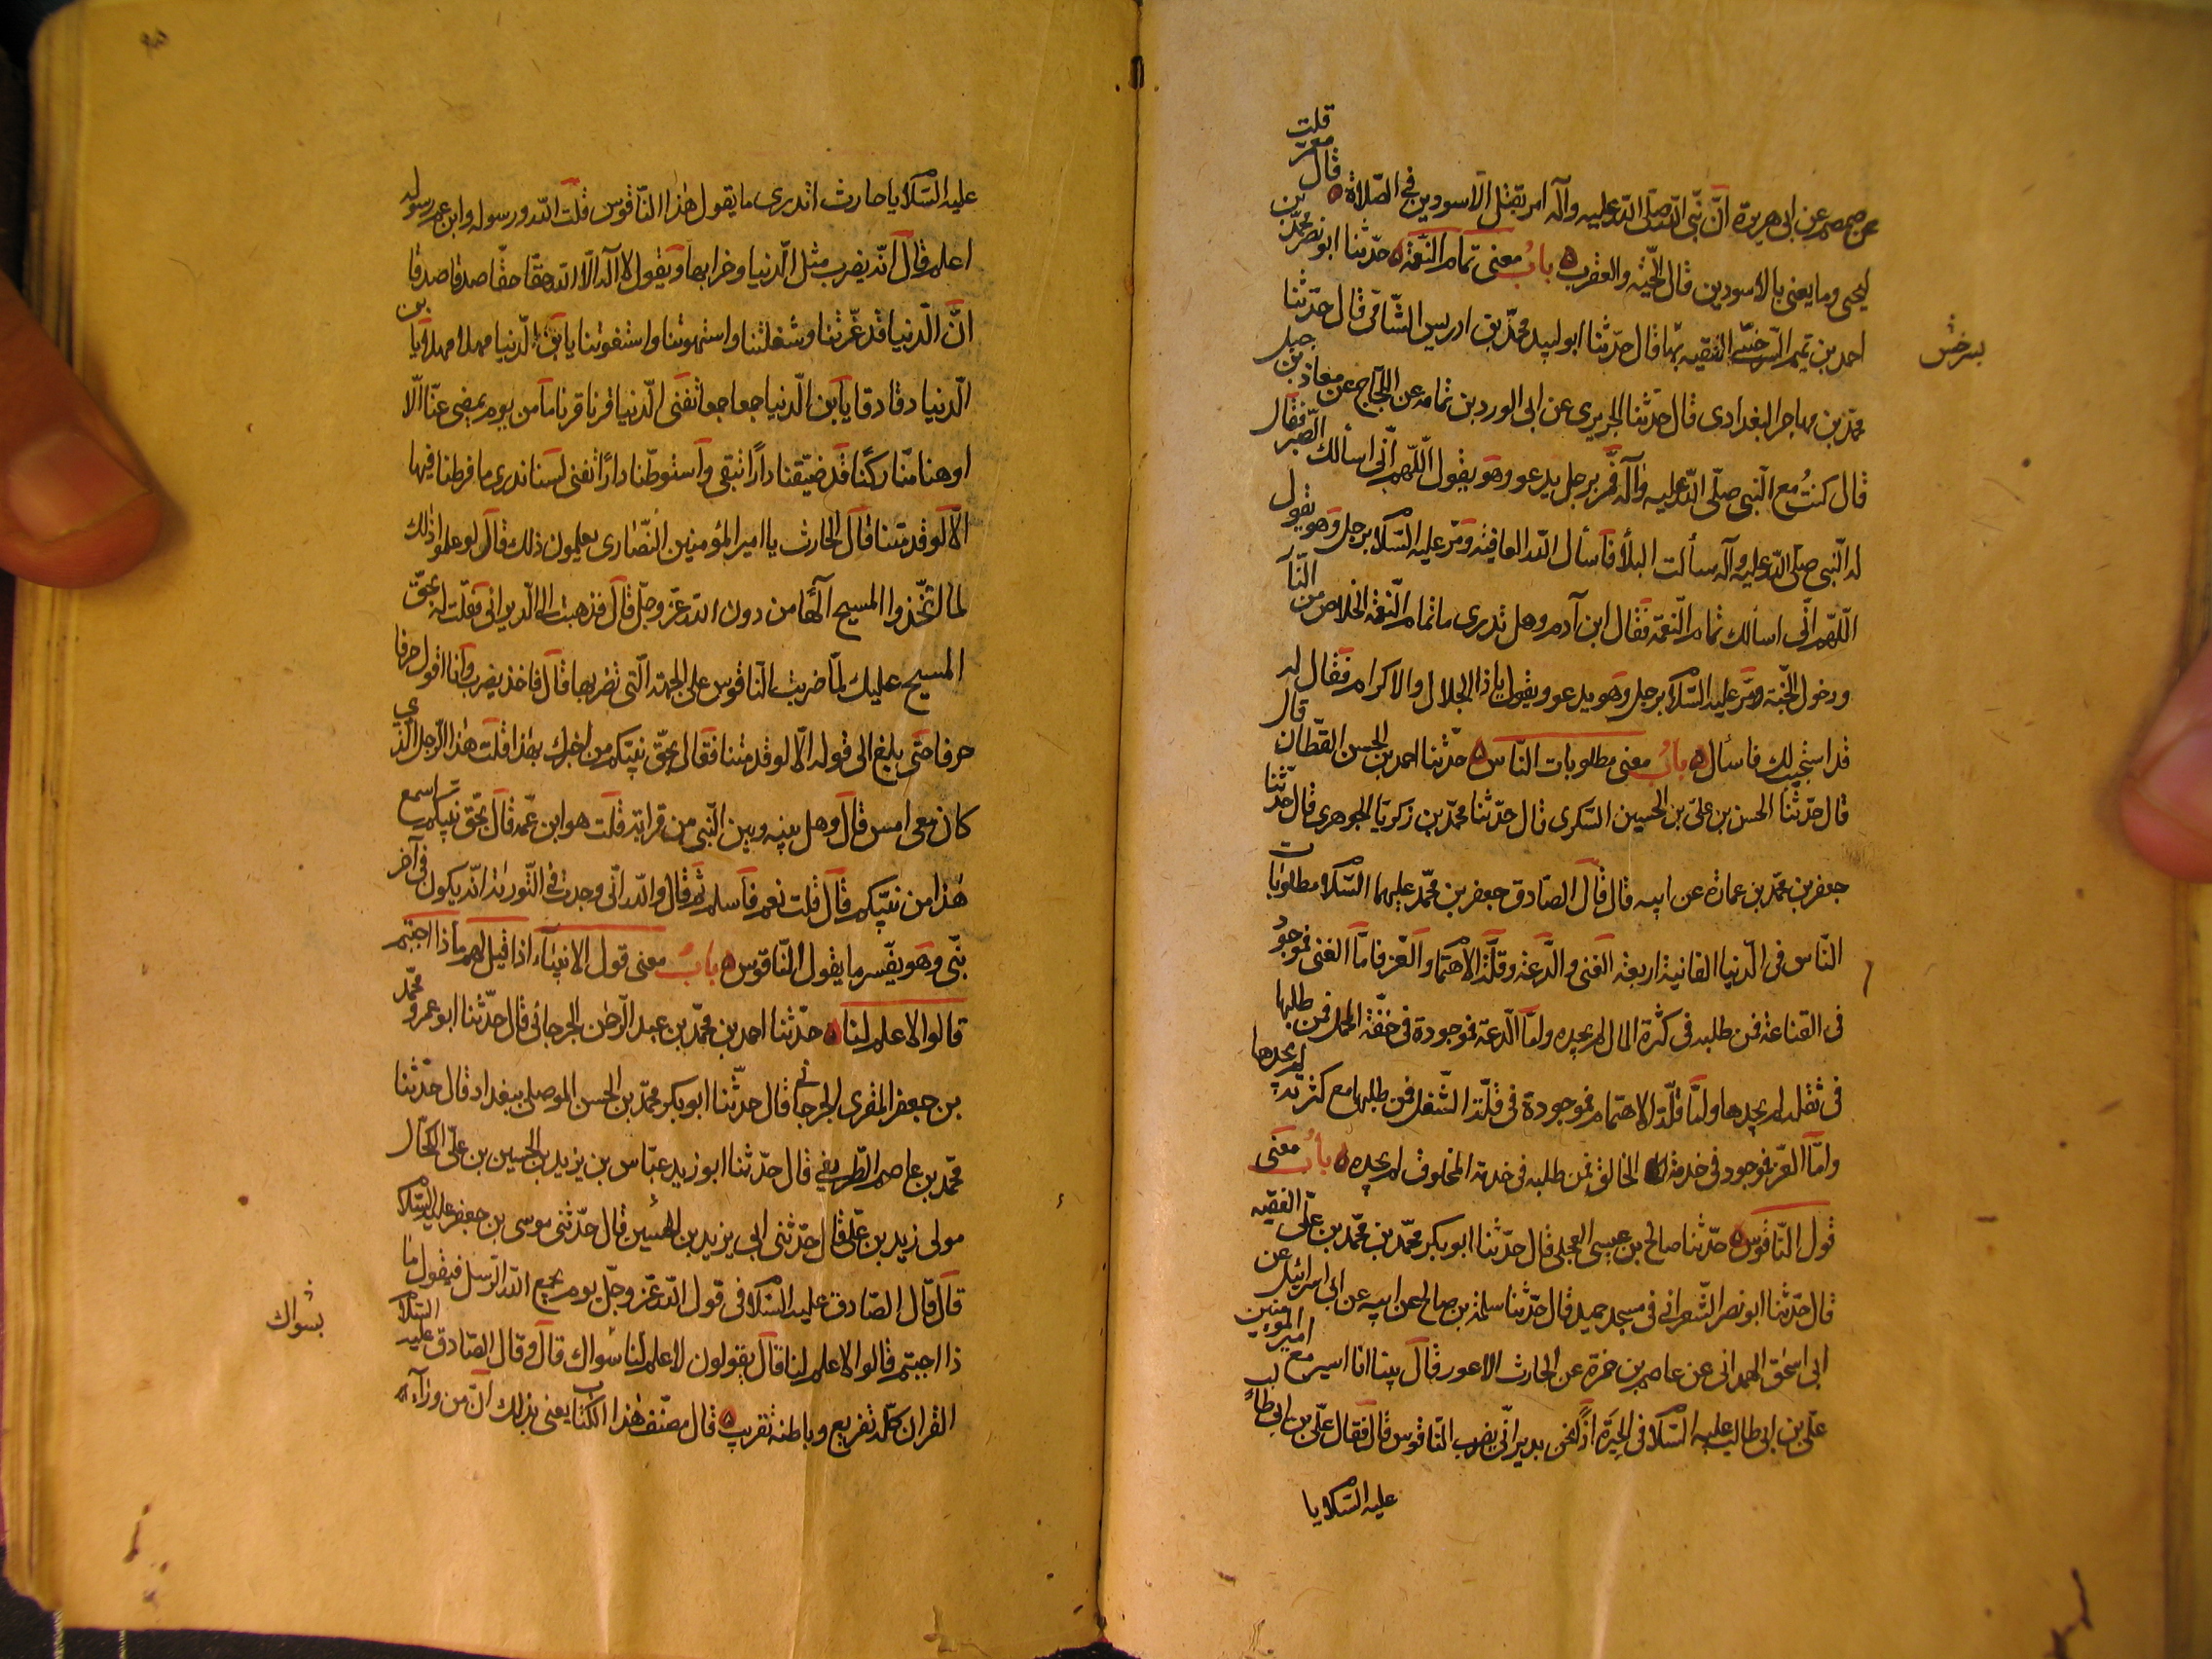 عن ضمضم عن ابى هريرة انّ نبّى الله صلّى الله عليه وآله امر بقتل الاسودين فى الصّلاة قال معمر قلت
ليحيى وما يعنى بالاسودين قال الحيّة والعقرب باب معنى تمام النعمة حدّثنا ابو نصر محمّد بن
احمد بن تميم السّرخسى الفقيه بها قال حدّثنا ابو لبيد محمّد بن ادريس الشّامى قال حدّثنا
محمّد بن مهاجر البغدادى قال حدّثنا الجريرى عن ابى الورد بن ثمامه عن اللّجلاج عن معاذ بن جبل
قال كنتُ مع النّبى صلّى الله عليه وآله فمرّ برجل يدعو وهو يقول اللّهم انّى اسألك الصّبر فقال
له النّبى صلّى الله عليه وآله سألت البلأ فأسأل الله العافيّة ومرّ عليه السّلام برجل وهو يقول
اللّهم انّى اسألك تمام النّعمة فقال ابن آدم وهل تدرى ما تمام النّعمة الخلاص من النّار
ودخول الجنّة ومرّ عليه السّلام برجل وهو يدعو ويقول ياذا الجلال والاكرام فقال له
قد استجيب لك فاسأل باب معنى مطلوبات النّاس حدّثنا احمد بن الحسن القطّان قال
قال حدّثنا الحسن بن علىّ بن الحسين السّكرى قال حدّثنا محمّد بن زكريّا الجوهرى قال حدّثنا
جعفر بن محمّد بن عمارة عن ابيه قال قال الصّادق جعفر بن محمّد عليهما السّلام مطلوبات
النّاس فى الدّنيا الفانية اربعة الغنى والدّعة وقلّة الاهتمام والعّز فامّا الغنى فموجود
فى القناعة فمن طلبه فى كثرة المال لم يجده وامّا الدّعة فموجودة فى خفّة المحمل فمن طلبها
فى ثقله لم يجدها وامّا قلّة الاهتمام فموجودة فى قلّة الشّغل فمن طلبها مع كثرته لم يجدها
وامّا العّز فموجود فى خدمة الخالق فمن طلبه فى خدمة المخلوق لم يجده باب معنى
قول النّاقوس حدّثنا صالح بن عيسى العجلى قال حدّثنا ابو بكر محمّد بن محمّد بن علّى الفقيه
قال حدّثنا ابو نصر الشّعرانى فى مسجد حميد قال حدّثنا سلمة بن صالح عن ابيه عن ابى اسرائيل عن
ابى اسحٰق الهمدانى عن عاصم بن ضمرة عن الحارث الاعور قال بينا انا اسير مع امير المومنين
علّى بن ابى طالب عليه السّلام فى الحيرَة اذًا نحن بديرانّى يضرب النّاقوس قال فقال علّى بن ابى طالب
عليه السّلام يا
بسرخس
عليه السّلام يا حارث اتدرى ما يقول هٰذا النّاقوس قلت الله ورسوله وابن عم رسوله
اعلم قال انّه يضرب مثل الدّنيا وخرابها ويقول لا اله الّا الله حقّا حقّا صدقا صدقا
انَّ الدّنيا قد غرّتنا وشغلتنا واستهوتنا واستغوتنا يابن الدّنيا مهلا مهلا ويابن
الّدنيا دقا دقا يابن الّدنيا جمعا جمعا تفنى الدّنيا قرنا قرنا ما من يوم يمضى عنّا الّا
اوهنا منّا ركنًا قد ضيّقنا دارًا تبقى واستوطنّا دارًا تفنى لسنا ندرى ما فرطنا فيها
الّا لو قد متنا قال الحارث يا امير المؤمنين النّصارى يعلمون ذلك قال لو علموا ذلك
لما اتّخذوا المسيح آلهًا من دون الله عزّ وجلّ قال فذهبت الى الدّيرانى فقلت له بحقّ
المسيح عليك لمّا ضربت النّاقوس على الجهة الّتى تضربها قال فاخذ يضرب وانا اقول حرفا
حرفا حتّى بلغ الى قوله الّا لو قد متنا فقال بحقّ نبيّكم من اخبرك بهذا قلت هٰذا الرّجل الذى
كان معى امس قال وهل بينه وبين النّبى من قرابة قلت هو ابن عمّه قال بحقّ نبيّكم اسمع
هٰذا من نبيّكم قال قلت نعم فاسلم ثم قال والله انّى وجدت فى التّورية انّه يكون فى آخر
نبّى وهو يفّسر ما يقول النّاقوس باب معنى قول الانبياء اذا قيل لهم ماذا اجبتم
قالوا لا علم لنا حدّثنا احمد بن محمّد بن عبد الرّحمٰن الجرجانى قال حدّثنا ابو عمرو محمّد
بن جعفر المقرى الجرجانى قال حدّثنا ابو بكر محمّد بن الحسن الموصلى ببغداد قال حدّثنا
محمّد بن عاصم الطّريفى قال حدّثنا ابو زيد عبّاس بن يزيد بن الحسين بن علّى الكحّال
مولى زيد بن علّى قال حدّثنى ابى يزيد بن الحسين قال حدّثنى موسى بن جعفر عليه السّلام
قال قال الصّادق عليه السّلام فى قول الله عزّ وجلّ يوم يجمع الله الرّسل فيقول ما
ذا اجبتم قالوا لا علم لنا قال يقولون لا علم لنا سواك قال وقال الصّادق عليه السّلام
القران كلّه تقريع وباطنه تقريب قال مصنّف هٰذا الكتاب يعنى بذلك انّ من وراء
بسواك